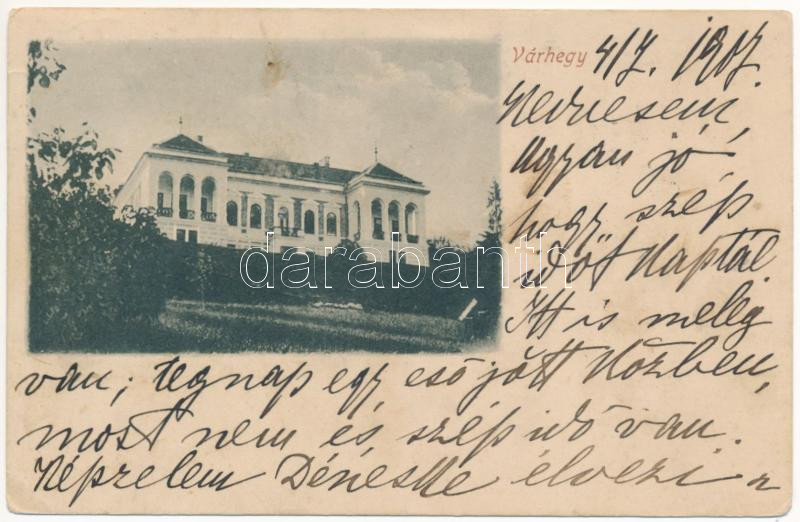 Várhegy
4/7. 1907.
Kedvesem,
Ugyan jó
hogy szép
időt kaptál.
Itt is meleg
darabanth
van; tegnap egy eső jött közben,
most nem és szép idő van.
Képzelem Déneske élvezi a